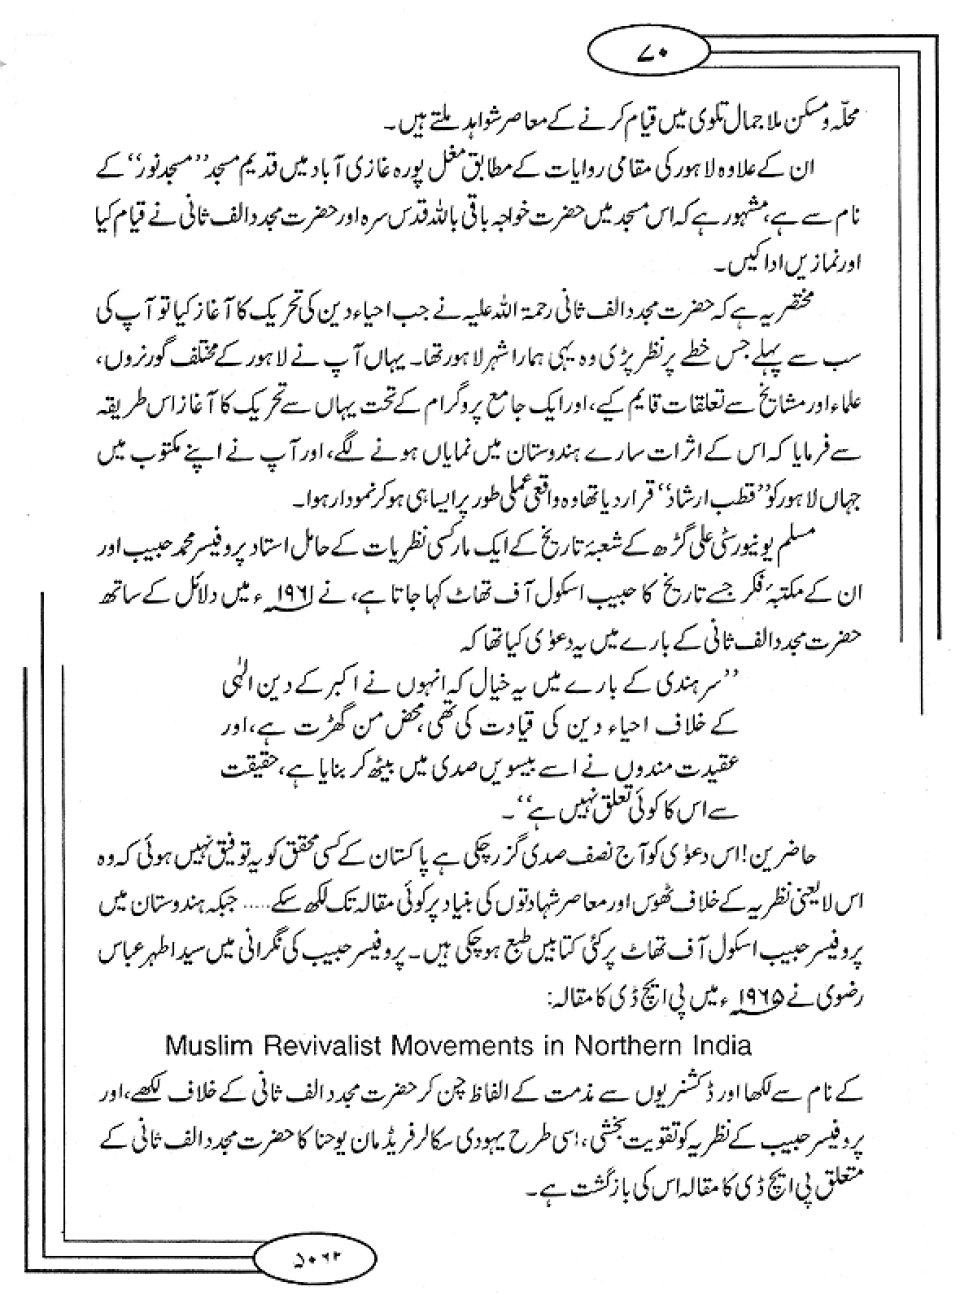 ۷۰
محلّہ و مسکن ملا جمال تلوی میں قیام کرنے کے معاصر شواہد ملتے ہیں۔
ان کے علاوہ لاہور کی مقامی روایات کے مطابق مغل پورہ غازی آباد میں قدیم مسجد ’’مسجد نور‘‘ کے
نام سے ہے، مشہور ہے کہ اس مسجد میں حضرت خواجہ باقی باللہ قدس سرہ اور حضرت مجدد الف ثانی نے قیام کیا
اور نمازیں ادا کیں۔
مختصر یہ ہے کہ حضرت مجدد الف ثانی رحمۃ اللہ علیہ نے جب احیاء دین کی تحریک کا آغاز کیا تو آپ کی
سب سے پہلے جس خطے پر نظر پڑی وہ یہی ہمارا شہر لاہور تھا۔ یہاں آپ نے لاہور کے مختلف گورنروں،
علماء اور مشایخ سے تعلقات قایم کیے، اور ایک جامع پروگرام کے تحت یہاں سے تحریک کا آغاز اس طریقہ
سے فرمایا کہ اس کے اثرات سارے ہندوستان میں نمایاں ہونے لگے، اور آپ نے اپنے مکتوب میں
جہاں لاہور کو ’’قطب ارشاد‘‘ قرار دیا تھا وہ واقعی عملی طور پر ایسا ہی ہو کر نمودار ہوا۔
مسلم یونیورسٹی علی گڑھ کے شعبۂ تاریخ کے ایک مارکسی نظریات کے حامل استاد پروفیسر محمد حبیب اور
ان کے مکتبۂ فکر جسے تاریخ کا حبیب اسکول آف تھاٹ کہا جاتا ہے، نے ۱۹۶۱ء میں دلائل کے ساتھ
حضرت مجدد الف ثانی کے بارے میں یہ دعوٰی کیا تھا کہ
’’سرہندی کے بارے میں یہ خیال کہ انہوں نے اکبر کے دین الٰہی
کے خلاف احیاء دین کی قیادت کی تھی، محض من گھڑت ہے، اور
عقیدت مندوں نے اسے بیسویں صدی میں بیٹھ کر بنایا ہے، حقیقت
سے اس کا کوئی تعلق نہیں ہے‘‘۔
حاضرین! اس دعوٰی کو آج نصف صدی گزر چکی ہے پاکستان کے کسی محقق کو یہ توفیق نہیں ہوئی کہ وہ
اس لایعنی نظریہ کے خلاف ٹھوس اور معاصر شہادتوں کی بنیاد پر کوئی مقالہ تک لکھ سکے..... جبکہ ہندوستان میں
پروفیسر حبیب اسکول آف تھاٹ پر کئی کتابیں طبع ہو چکی ہیں۔ پروفیسر حبیب کی نگرانی میں سید اطہر عباس
رضوی نے ۱۹۶۵ء میں پی ایچ ڈی کا مقالہ:
Muslim Revivalist Movements in Northern India
کے نام سے لکھا اور ڈکشنریوں سے مذمت کے الفاظ چن کر حضرت مجدد الف ثانی کے خلاف لکھے، اور
پروفیسر حبیب کے نظریہ کو تقویت بخشی، اسی طرح یہودی سکالر فریڈمان یوحنا کا حضرت مجدد الف ثانی کے
متعلق پی ایچ ڈی کا مقالہ اس کی بازگشت ہے۔
۵۰۶۲